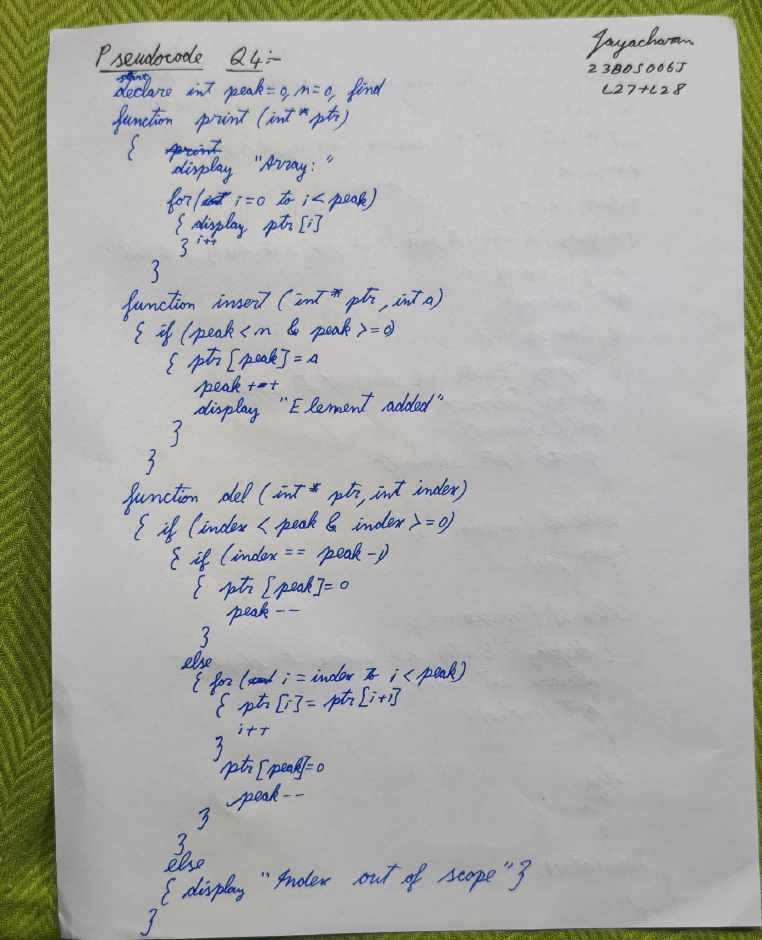 Pseudocode Q4:-
Jayacharan
23BDS0065
L27+L28
start
declare int peak=0, n=0, find
function print (int* ptr)
{ print
display "Array: "
for(int i=0 to i<peak)
{ display ptr[i]
i++
}
}
function insert (int* ptr, int a)
{ if (peak<n & peak >=0)
{ ptr[peak]=a
peak++
display "Element added"
}
}
function del (int* ptr, int index)
{ if (index < peak & index >=0)
{ if (index == peak-1)
{ ptr[peak]=0
peak--
}
else
{ for (int i = index to i<peak)
{ ptr[i] = ptr[i+1]
i++
}
ptr[peak]=0
peak--
}
}
else
{ display "Index out of scope"}
}